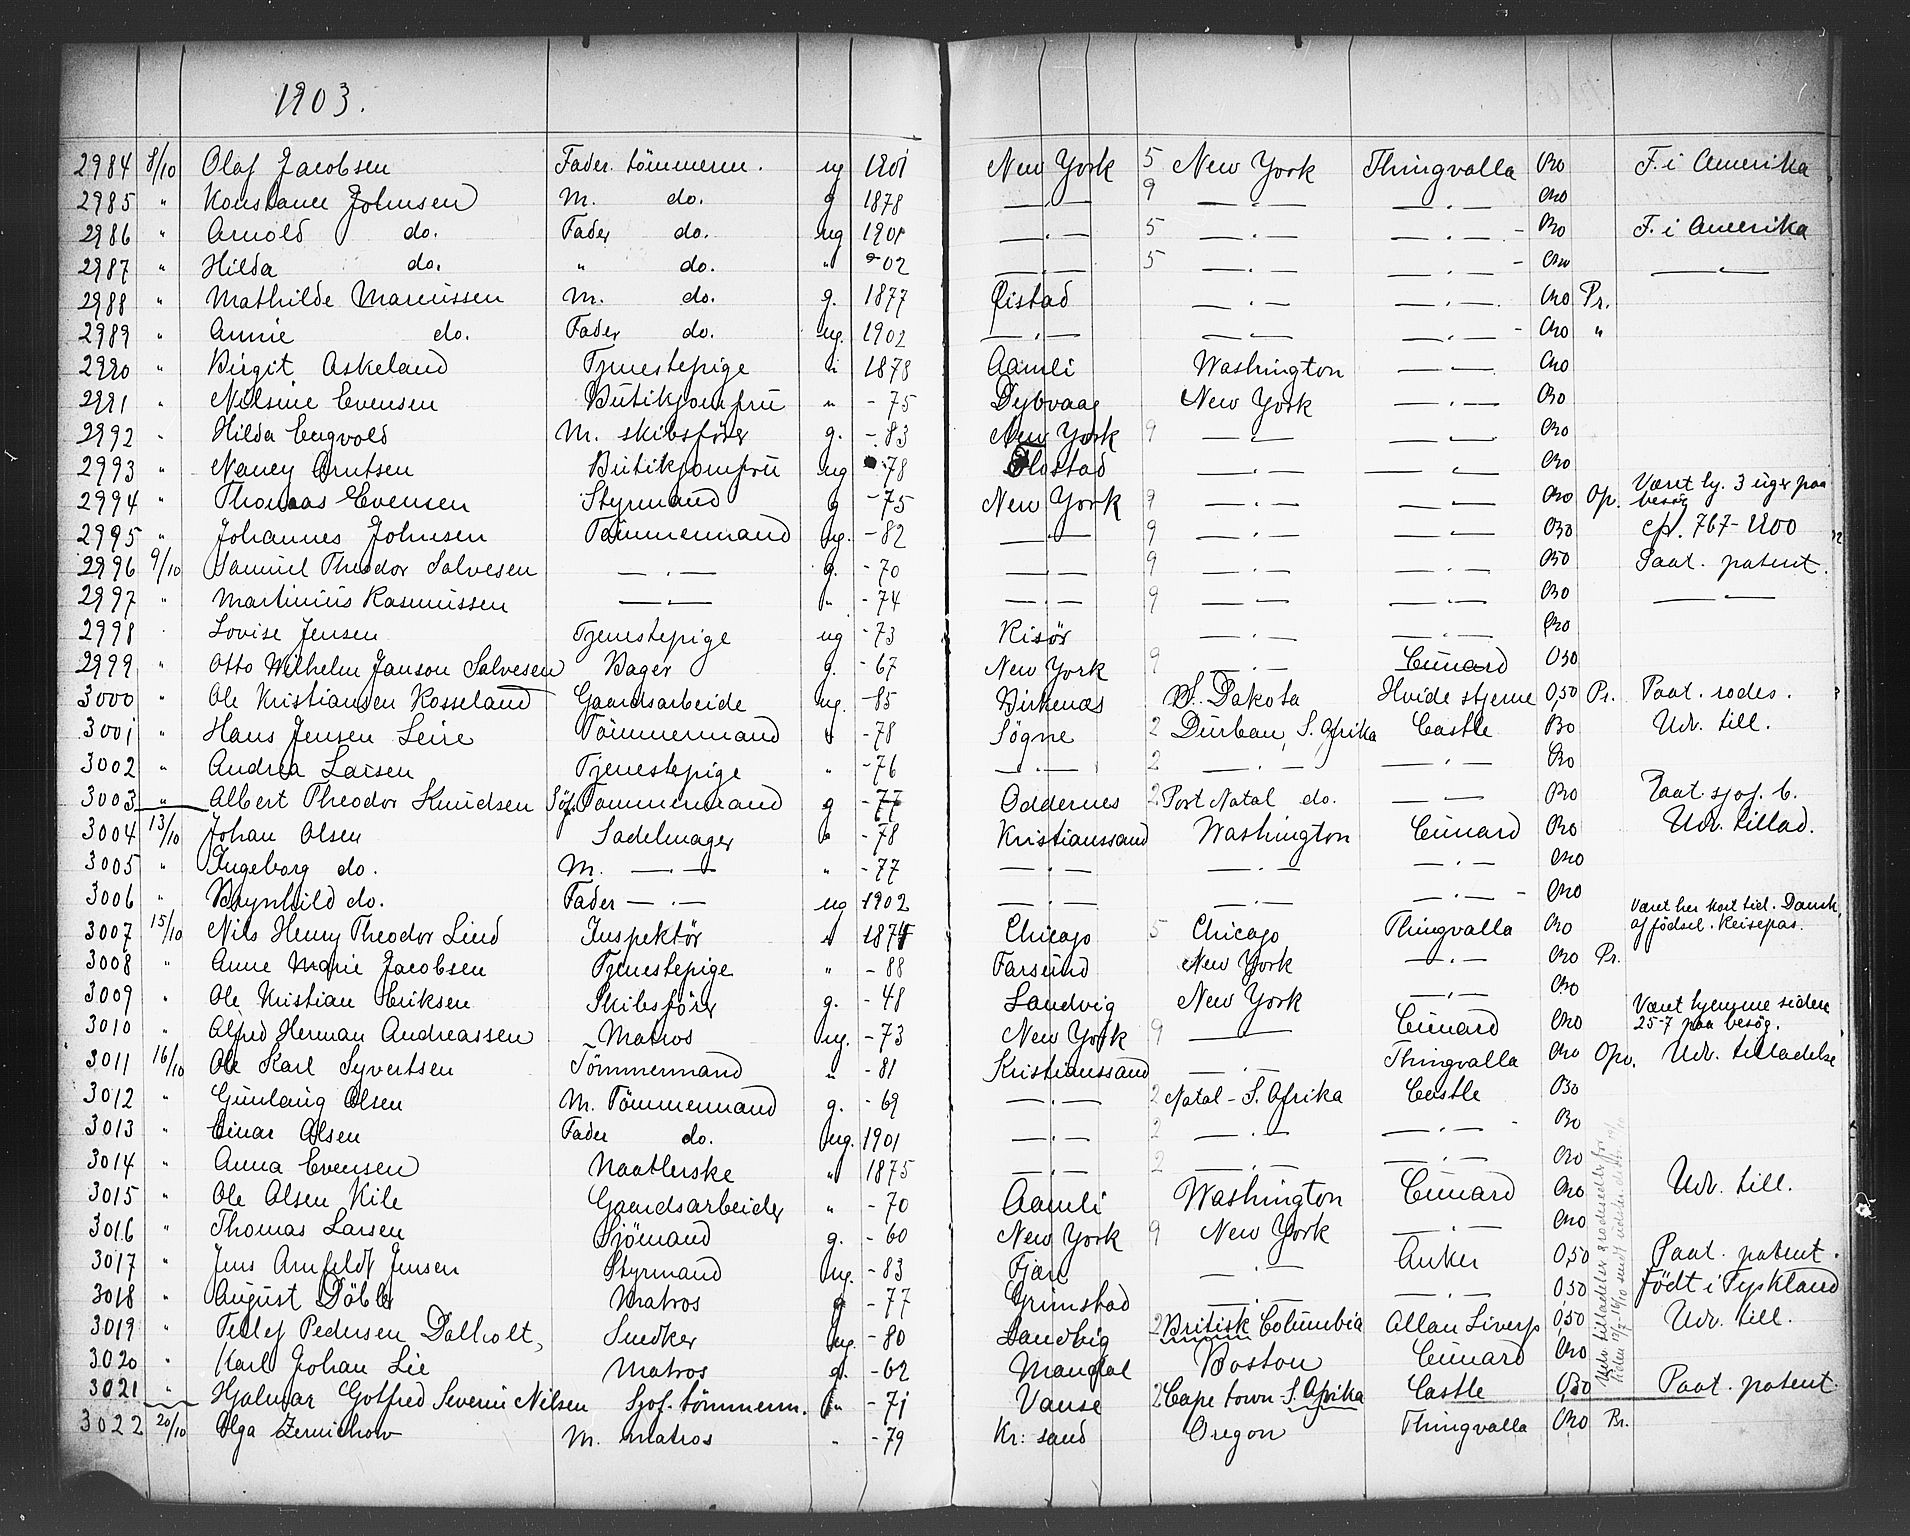 1903.
2984 8/10 Olaf Jacobsen Fader tömmerm. ug 1901 New York 5 New York Thingvalla F. i Amerika
2985 " Konstance Johnsen M. do. g 1878 — . — 9 — . — — . —
2986 " Arnold do. Fader do. ug 1901 — . — 5 — . — — . — - F. i Amerika
2987 " Hilda do. " do. " -02 — . — 5 — . — — . — - — " —
2988 " Mathilde Marcussen M. do. g. 1877 Öistad — . — — . — Pr.
2989 " Annie do. Fader do. ug. 1902 — . — — . — — . — - "
2990 " Birgit Askeland Tjenestepige " 1878 Aamli Washington — . —
2991 " Nilsine Evensen Butikjomfru " -75 Dybvaag New York — . —
2992 " Hilda Engvold M. skibsförer g. -83 New York 9 — . — — . —
2993 " Nancy Arntsen Butikjomfru ug -78 Flostad — . — — . —
2994 " Thomas Evensen Styrmand g -75 New York 9 — . — — . — Op. Været hj. 3 uger paa besög
2995 " Johannes Johnsen Tömmermand ug. -82 — . — 9 — . — — . — cfr. 767-1900
2996 9/10 Samuel Theodor Salvesen — . — g. -70 — . — 9 — . — — . — Paat. patent.
2997 " Martinius Rasmussen — . — " -74 — . — 9 — . — — . — — " —
2998 " Lovise Jensen Tjenestepige ug -73 Risör — . — — . —
2999 " Otto Wilhelm Janson Salvesen Bager g. -67 New York 9 — . — Cunard 0,50
3000 " Ole Kristiansen Rosseland Gaardsarbeide ug. -85 Birkenæs S. Dakota Hvide stjerne 0,50 Pr. Paat. rodes.
3001 " Hans Jensen Leire Tömmermand " -78 Søgne 2 Durban, S. Afrika Castle Udv. till.
3002 " Andrea Larsen Tjenestepige " -76 — . — 2 — . — — . —
3003 " Albert Theodor Knudsen Söf. Tömmermand g -77 Oddernes 2 Port Natal do. — . — Paat. sjof. b.
3004 13/10 Johan Olsen Sadelmager " -78 Kristianssand Washington Cunard Udv. tillad.
3005 " Ingeborg do. M. — . — " -77 — . — — . — — . —
3006 " Brynhild do. Fader — . — ug 1902 — . — — . — — . — -
3007 15/10 Nils Henry Theodor Lind Inspektör " Chicago 5 Chicago Thingvalla Været her kort tid. Dansk af födsel. Reisepas.
3008 " Anne Marie Jacobsen Tjenestepige " -88 Farsund New York — . — Pr.
3009 " Ole Kristian Eriksen Skibsförer g. -48 Landvig New York — . —
3010 " Alfred Herman Andreassen Matros ug. -73 New York 9 — Cunard Været hjemme siden 25-7 paa besög.
3011 16/10 Ole Karl Syvertsen Tömmermand " -81 Kristianssand — . — Thingvalla Opv. Udv. tilladelse
3012 " Gunlaug Olsen M. Tömmermand g. -69 — . — 2 Natal - S. Afrika Castle
3013 " Einar Olsen Fader do. ug. 1901 — . — 2 — . — — . — -
3014 " Anna Evensen Naatlerske " 1875 — . — 2 — . — — . —
3015 " Ole Olsen Kile Gaardsarbeider " -70 Aamli Washington Cunard Udv. till.
3016 " Thomas Larsen Sjömand g. -60 New York 9 New York — . —
3017 " Jens Arnfeldt Jensen Styrmand ug. -83 Fjære — . — Anker 0,50 Paat. patent.
3018 " August Döbler Matros g -77 Grimstad — . — — . — 0,50 Födt i Tyskland
3019 " Tellef Pedersen Dalholt, Snedker ug. -80 Landvig 2 Britisk Columbia Allan Liverp 0,50 Udv. till.
3020 " Karl Johan Lie Matros g. -62 Mandal Boston Cunard
3021 " Hjalmar Gotfred Severin Nilsen Sjof. tömmerm. " -71 Vanse 2 Cape town S. Afrika Castle Paat. patent
3022 20/10 Olga Zernichow M. matros " -79 Kr: sand Oregon Thingvalla Pr.